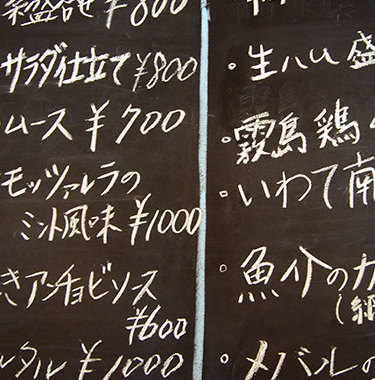 盛合せ ¥800
サラダ仕立て ¥800
ムース ¥700
モッツァレラの
ミント風味 ¥1000
きアンチョビソース
¥600
タル ¥1000
・生ハム 盛
・霧島 鶏
・いわて南
・魚介のカ
(網
・メバルの